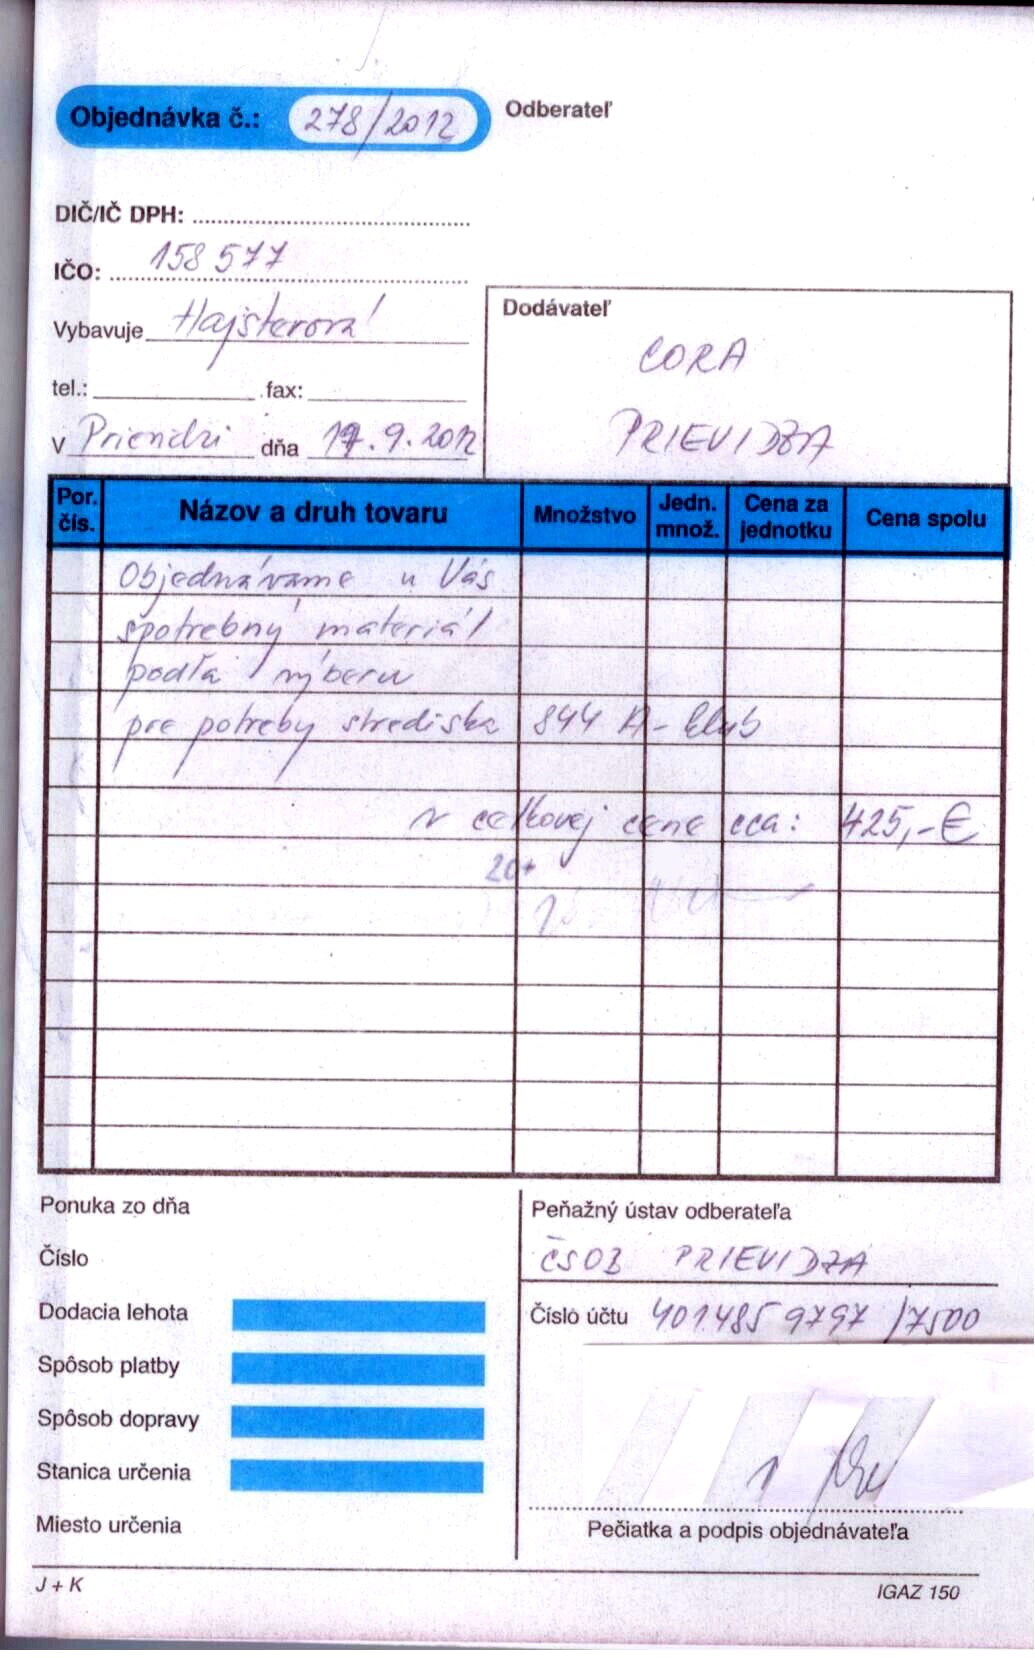 Objednávka č.: 278/2012
Odberateľ
DIČ/IČ DPH:
IČO: 158 577
Vybavuje Hajsterová
tel.: fax:
V Prievidzi dňa 17.9.2012
Dodávateľ
CORA
PRIEVIDZA
Por. čís. Názov a druh tovaru Množstvo Jedn. množ. Cena za jednotku Cena spolu
Objednávame u Vás
spotrebný materiál
podľa výberu
pre potreby strediska 844 A-klub
v celkovej cene cca: 425,-€
20+
Ponuka zo dňa
Číslo
Dodacia lehota
Spôsob platby
Spôsob dopravy
Stanica určenia
Miesto určenia
Peňažný ústav odberateľa
ČSOB PRIEVIDZA
Číslo účtu 401485 9797 /7500
Pečiatka a podpis objednávateľa
J + K
IGAZ 150